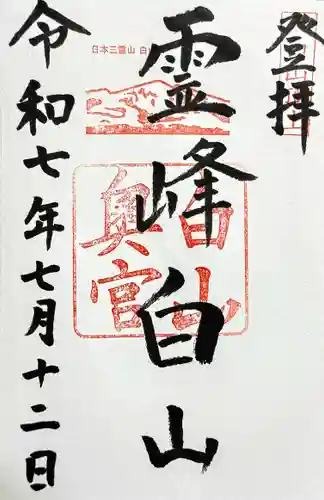 登拝
日本三霊山 白
霊峰白山
白山
奥宮
令和七年七月十二日